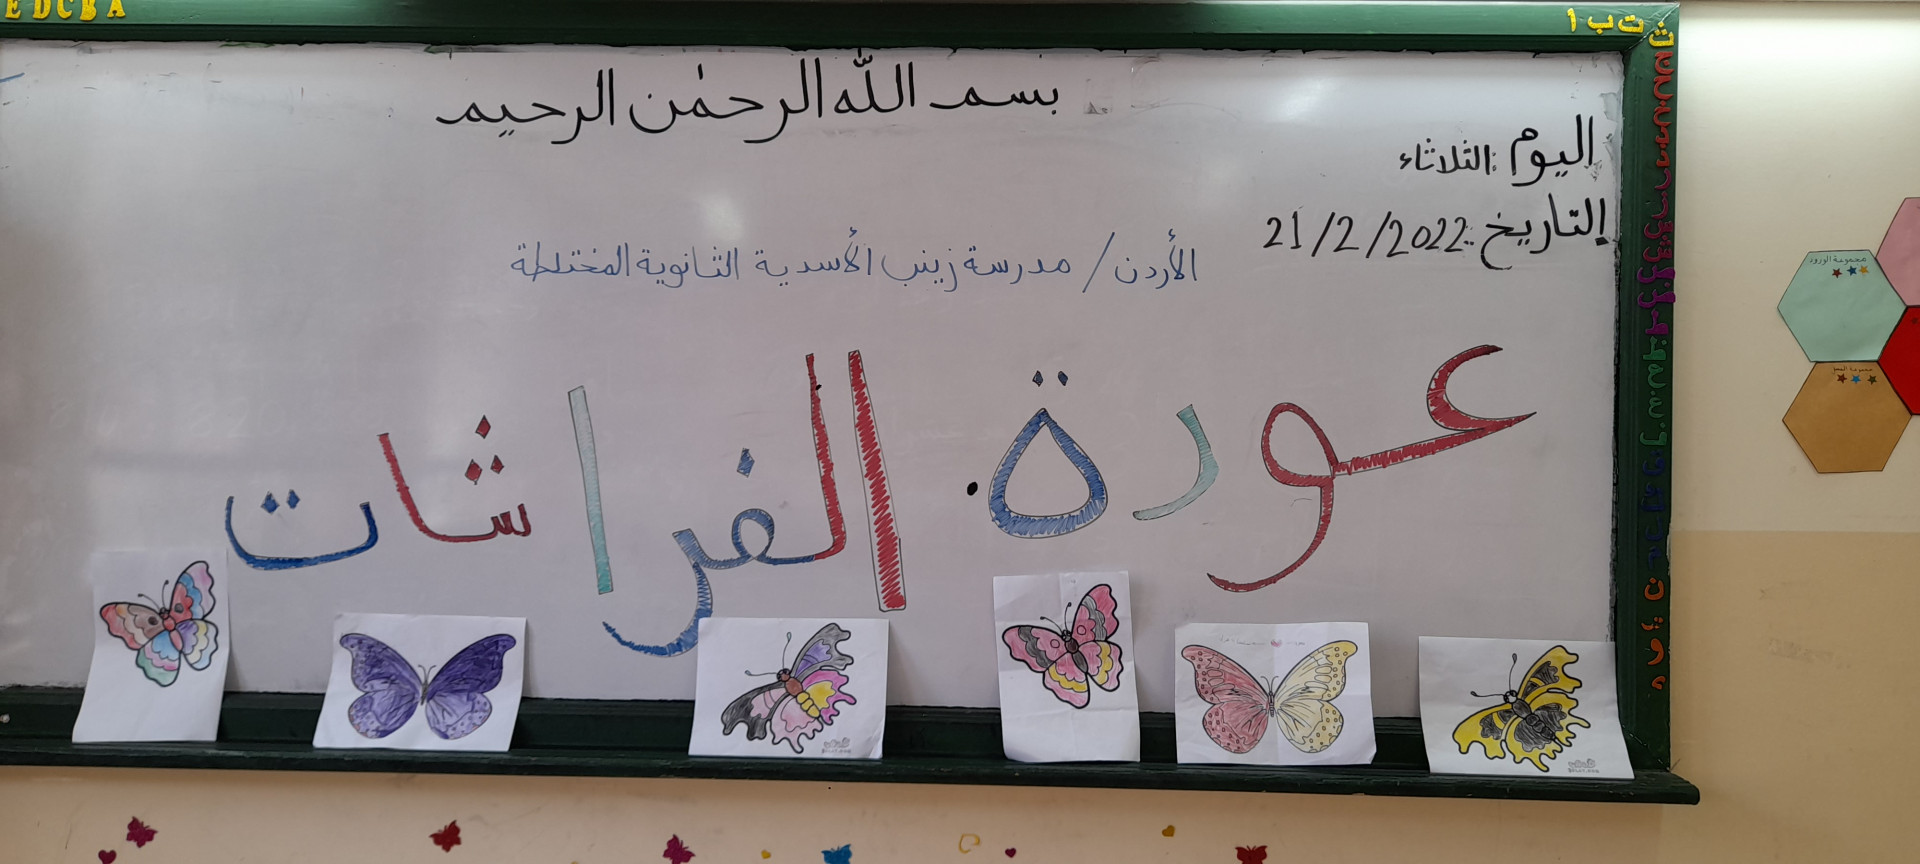 E D C B A
ا ب ت ث
بسم الله الرحمٰن الرحيم
اليوم: الثلاثاء
التاريخ: 21/2/2022
الأردن / مدرسة زينب الأسدية الثانوية المختلطة
عودة الفراشات
مجموعة الورود